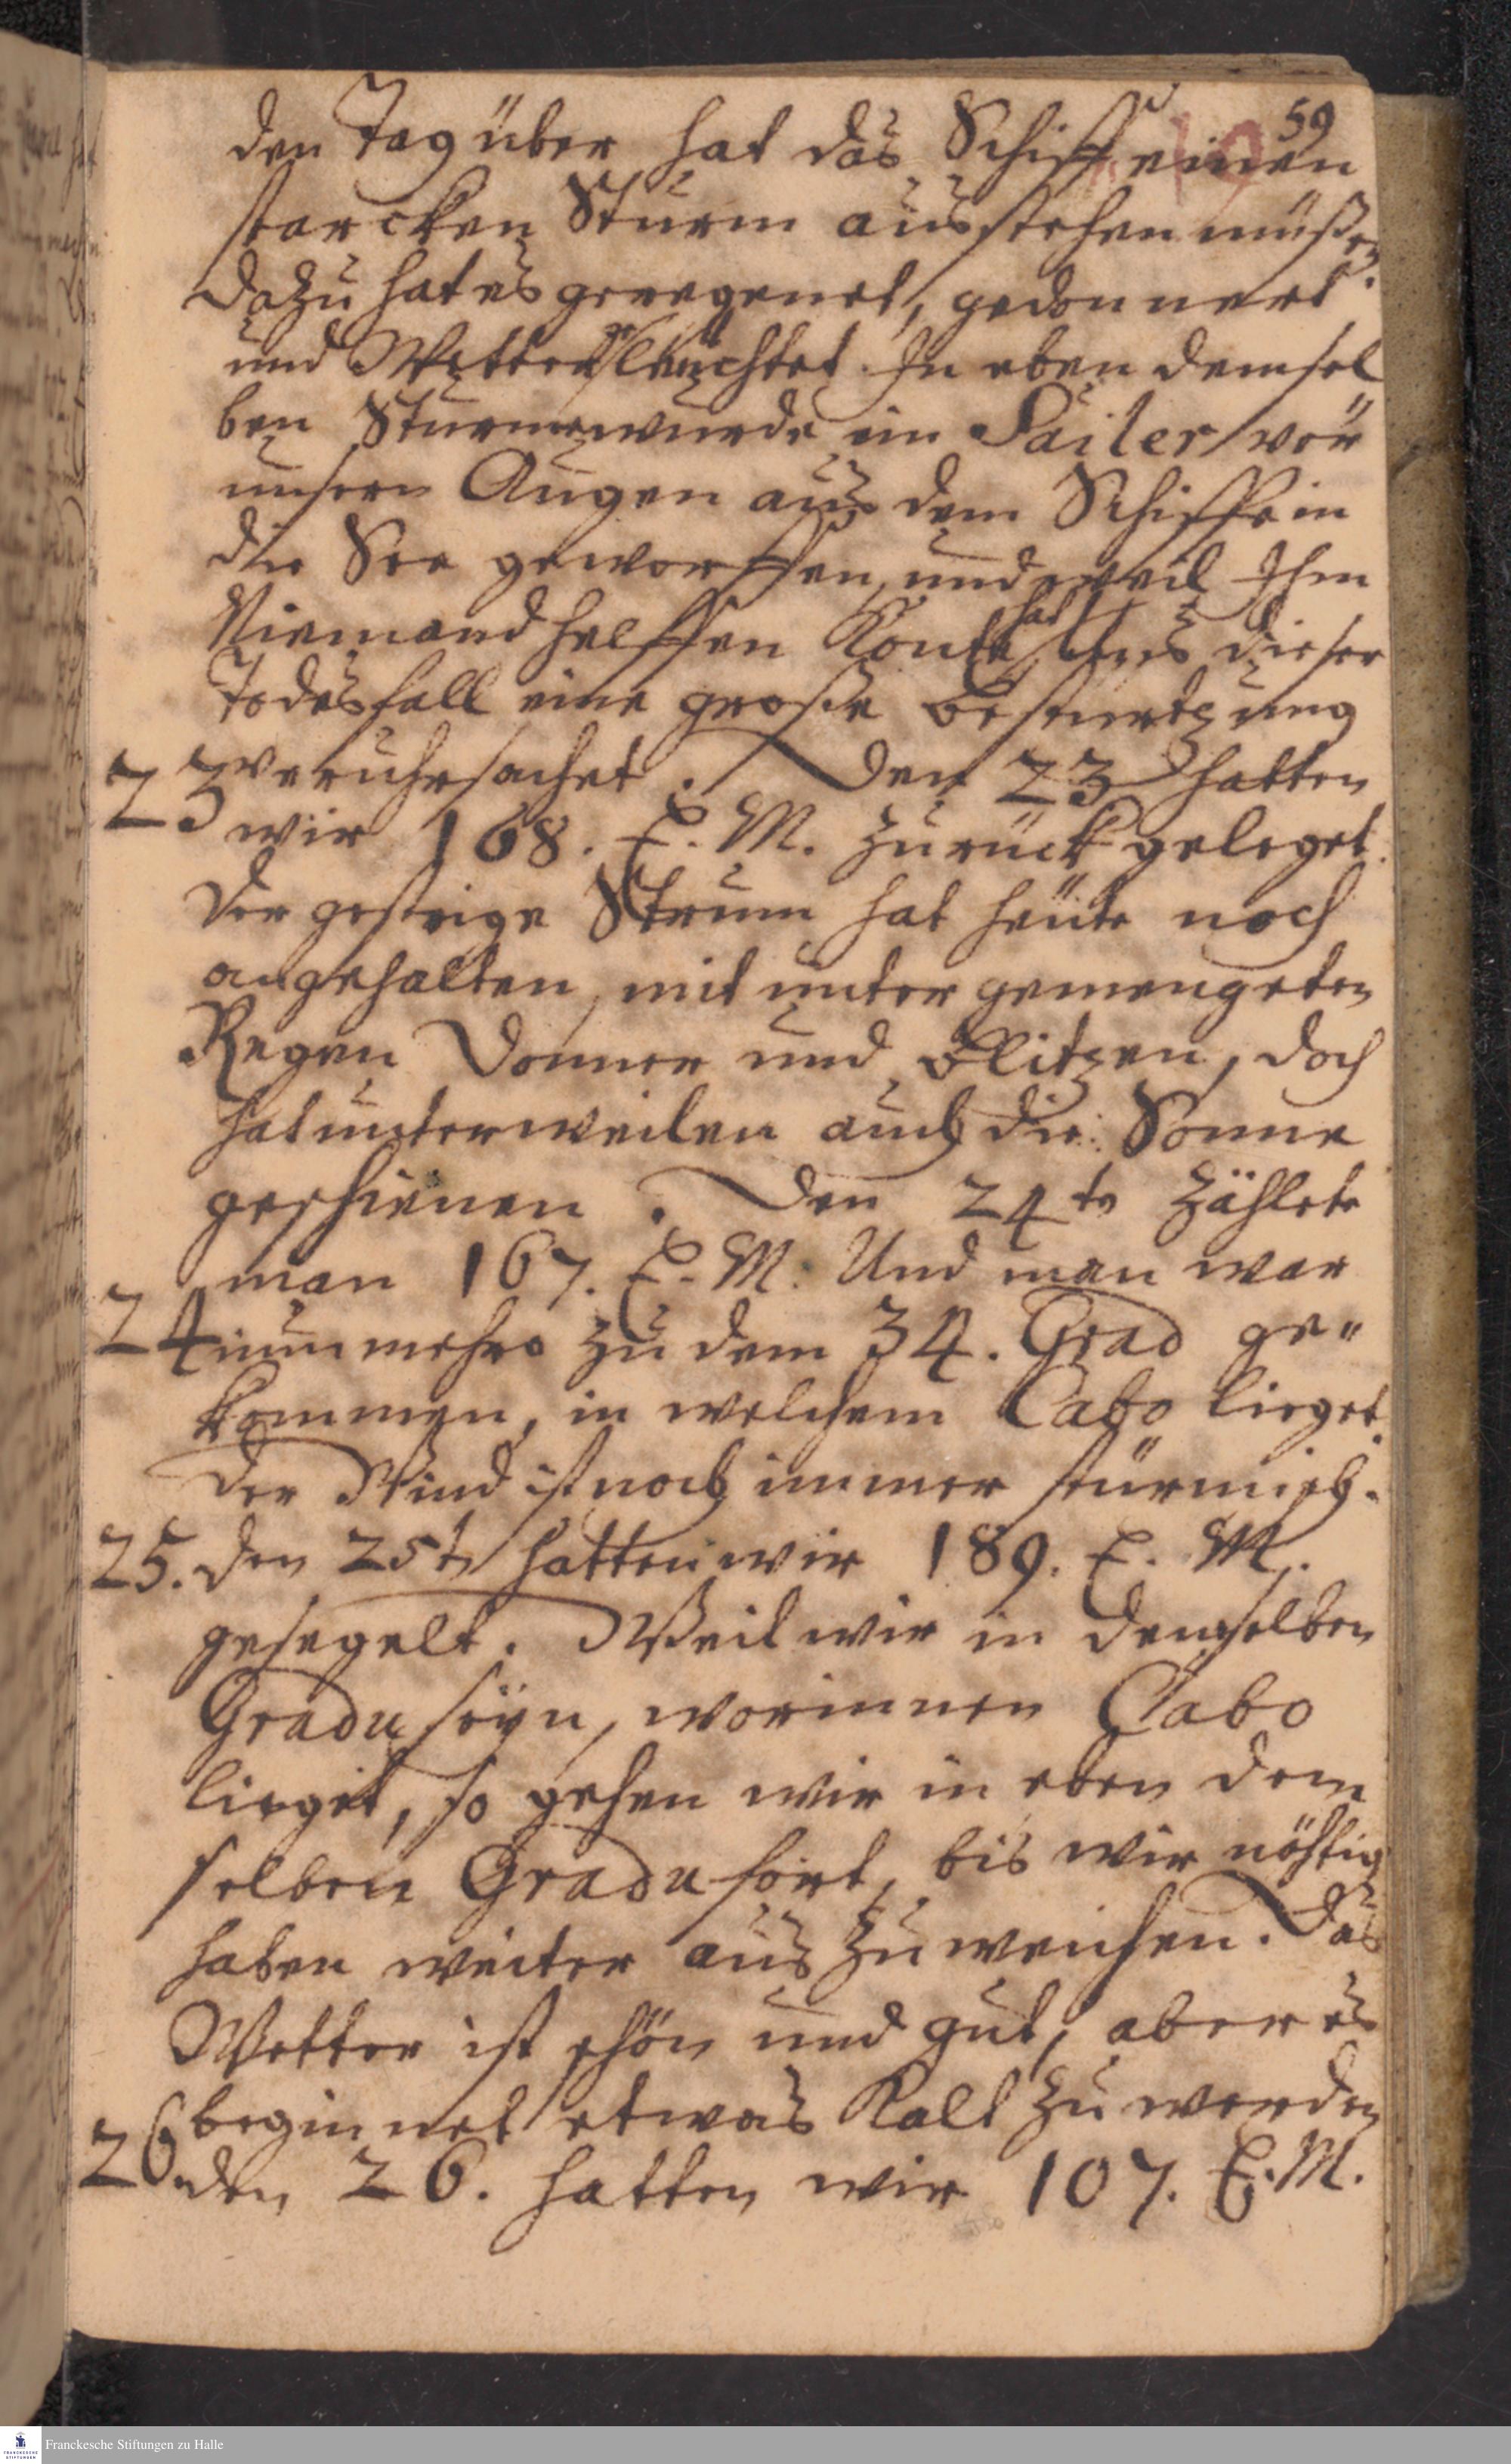 59
den Tag über hat das Schiff einen
starcken Sturm ausstehen müßen
dazu hat es geregenet, gedonnert.
und Wetter geleuchtet. In eben demsel
ben Sturme wurde ein Sailer vor
unsern Augen aus dem Schiffe in
die See geworffen, und weil Ihm
Niemand helffen konte hat uns dieser
Todesfall eine große bestürtzung
23 veruhrsachet. Den 23 hatten
wir 168. E. M. zurück geleget.
der gestrige Strum hat heute noch
angehalten, mit unter gemengeten
Regen Donner und blitzen, doch
hat unterweilen auch die Sonne
geschienen. Den 24tn zählete
man 167. E. M. Und man war
24 nunmehro zu dem 34. Grad ge"
kommen, in welchem Cabo lieget.
der Wind ist noch immer stürmisch.
25. den 25tn hatten wir 189. E. M.
gesegelt. Weil wir in demselben
Gradu seyn, worinnen Cabo
lieget, so gehen wir in eben dem
selben Gradu fort, bis wir nöhtig
haben weiter aus zu weichen. Das
Wetter ist schön und gut, aber es
beginnet etwas kalt zu werden
26 den 26. hatten wir 107. E. M.
Franckesche Stiftungen zu Halle